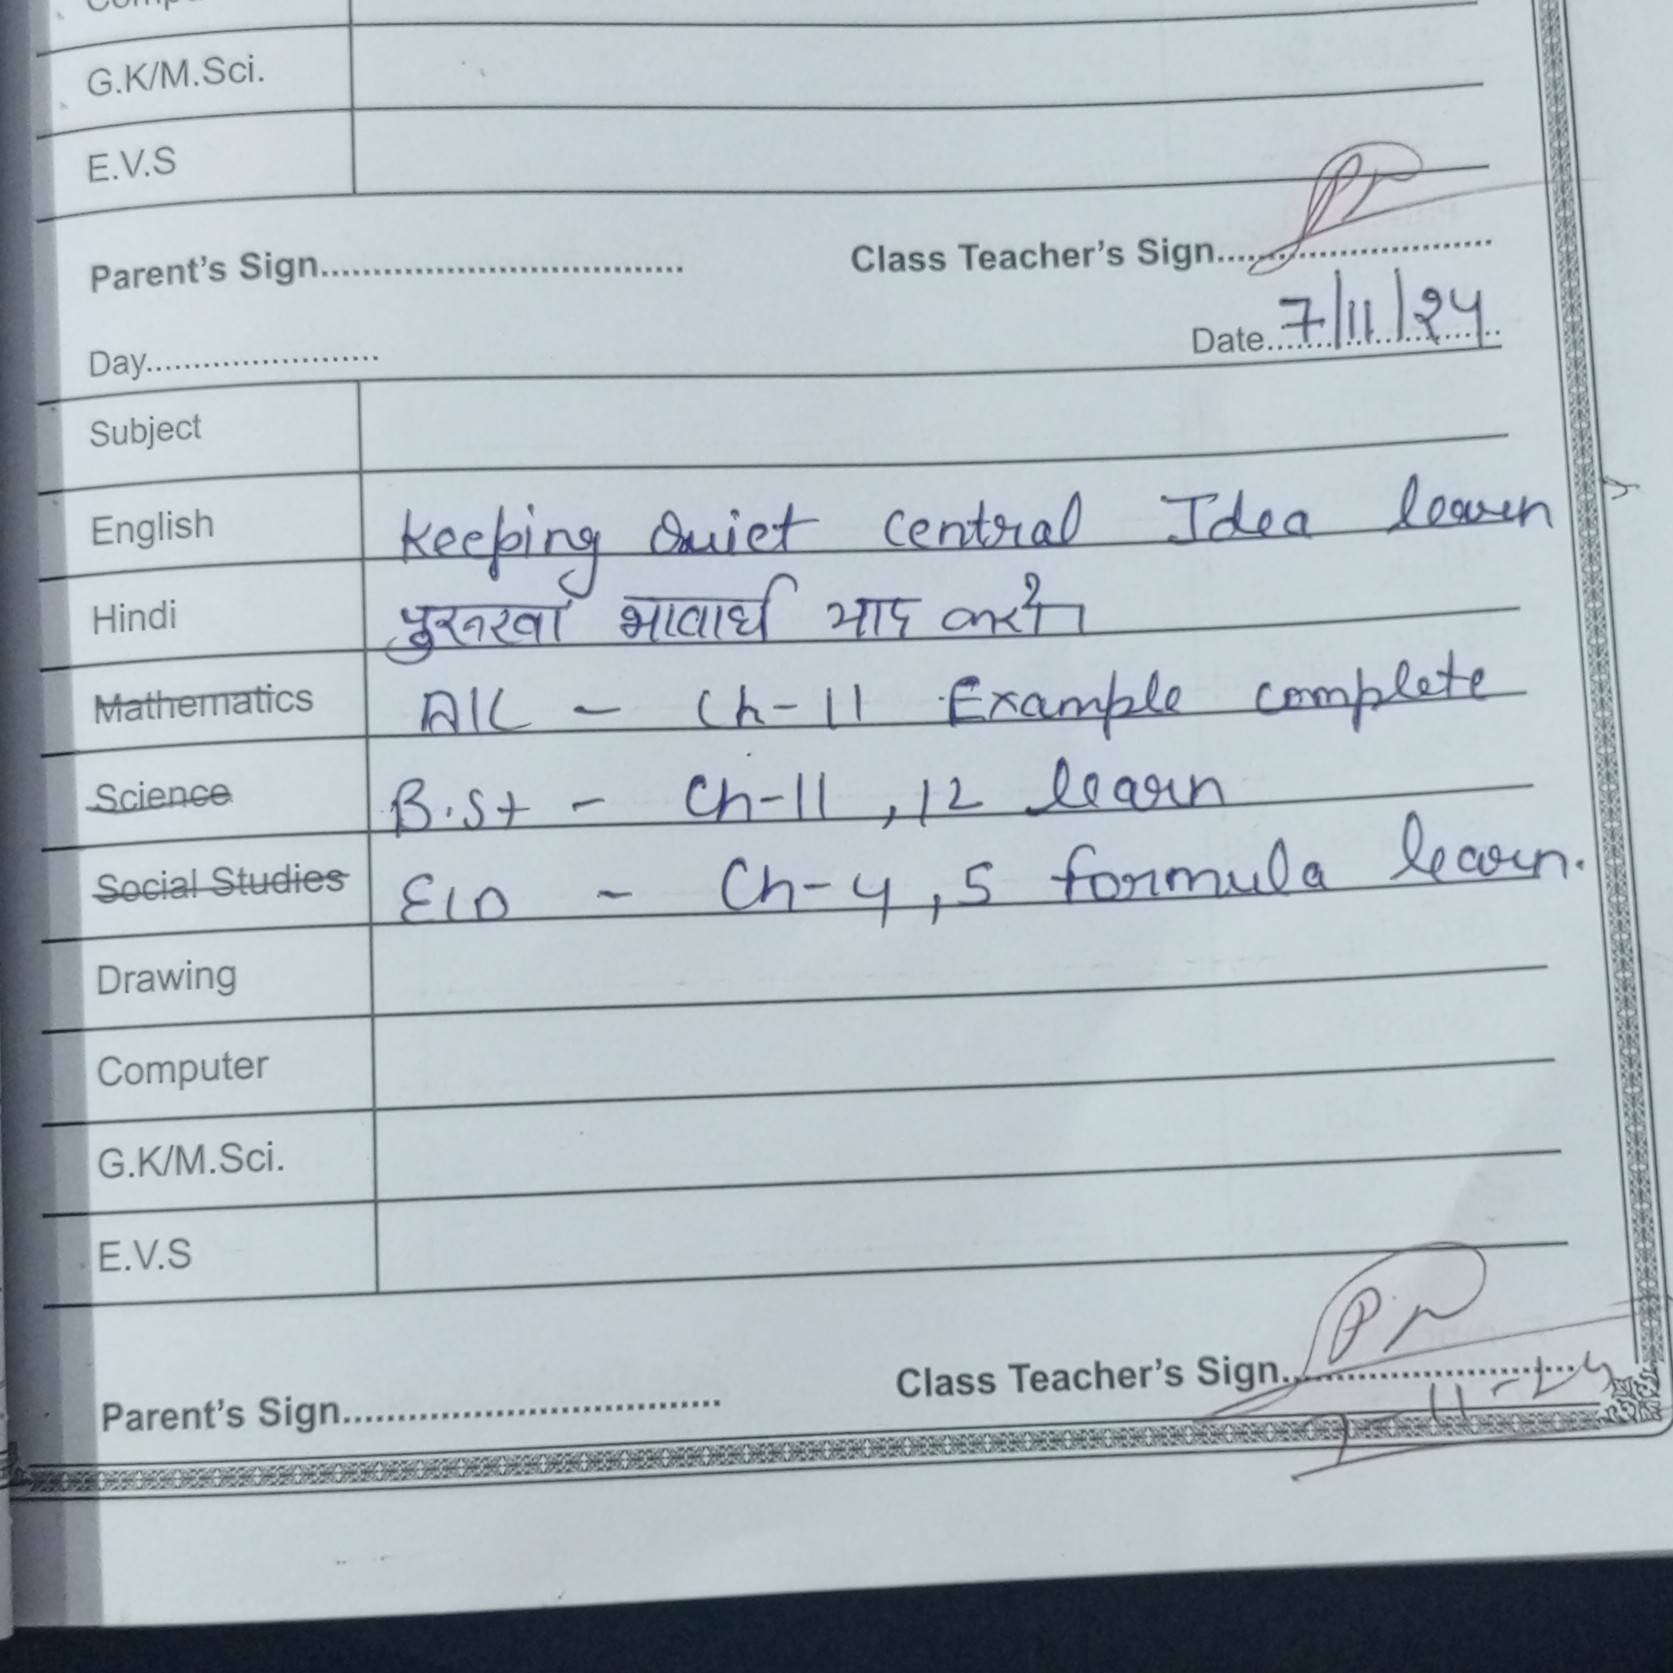 G.K/M.Sci.
E.V.S
Parent's Sign.................................. Class Teacher's Sign..............................
Day........................ Date 7/11/24
Subject
English Keeping Quiet central Idea learn
Hindi भावार्थ याद करें।
Mathematics A/C - Ch-11 Example complete
Science B.St - Ch-11, 12 learn
Social Studies - Ch-4, 5 formula learn.
Drawing
Computer
G.K/M.Sci.
E.V.S
Parent's Sign.................................. Class Teacher's Sign..............................